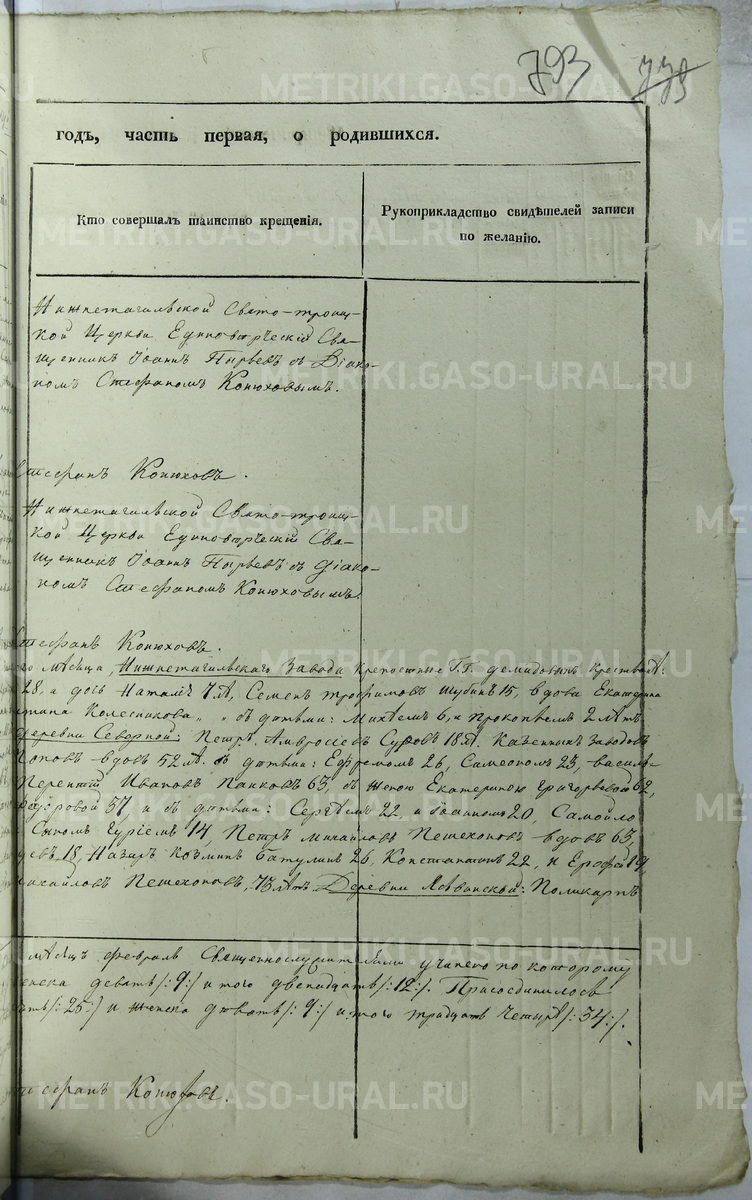 793 779
годъ, часть первая, о родившихся.
Кто совершалъ таинство крещенія.
Рукоприкладство свидѣтелей записи
по желанію.
Нижнетагильской Свято-троиц-
кой Церкви Единовѣрческій Свя-
щенникъ Іоаннъ Пырьевъ съ Діако-
номъ Стефаномъ Конюховымъ.
Стефанъ Конюховъ.
Нижнетагильской Свято-троиц-
кой Церкви Единовѣрческій Свя-
щенникъ Іоаннъ Пырьевъ съ Діако-
номъ Стефаномъ Конюховымъ.
Стефанъ Конюховъ.
мѣсяца, Нижнетагильскаго Завода Крепостные Г.Г. Демидовыхъ
28, и дочь Наталіѧ 7 л., Семенъ Трофимовъ Шубинъ 15, вдова Екатерина
Колесникова „ „ съ дѣтьми: Михѣемъ 6, и Прокопьемъ 2 лѣтъ
деревни Северной: Петръ Амвросіевъ 18 л. Казенныхъ Заводовъ
Поповъ вдовъ 52 л. съ дѣтьми: Ефремомъ 26, Самсономъ 23,
Иванова Панковъ 63, съ женою Екатериною Григорьевой 62,
57 и съ дѣтьми: Сергѣемъ 22, и Іоанномъ 20, Самойло
Сыномъ Гуріемъ 14 Петръ Михайловъ Пешехоновъ вдовъ 63,
18, Назаръ Козминъ Батулинъ 26, Константинъ 22, и Ерофей 19,
Михайловъ Пешехоновъ, 73 лѣтъ. Деревни: Поликарпъ
мѣсяцъ февраль Священнослужителями учинено по которому
женска девять /:9:/ итого двенадцать /:12:/. Присоединилось
/:25:/ и женска девять /:9:/ итого тридцать четыре /:34:/.
Стефанъ Конюховъ.
METRIKI.GASO-URAL.RU